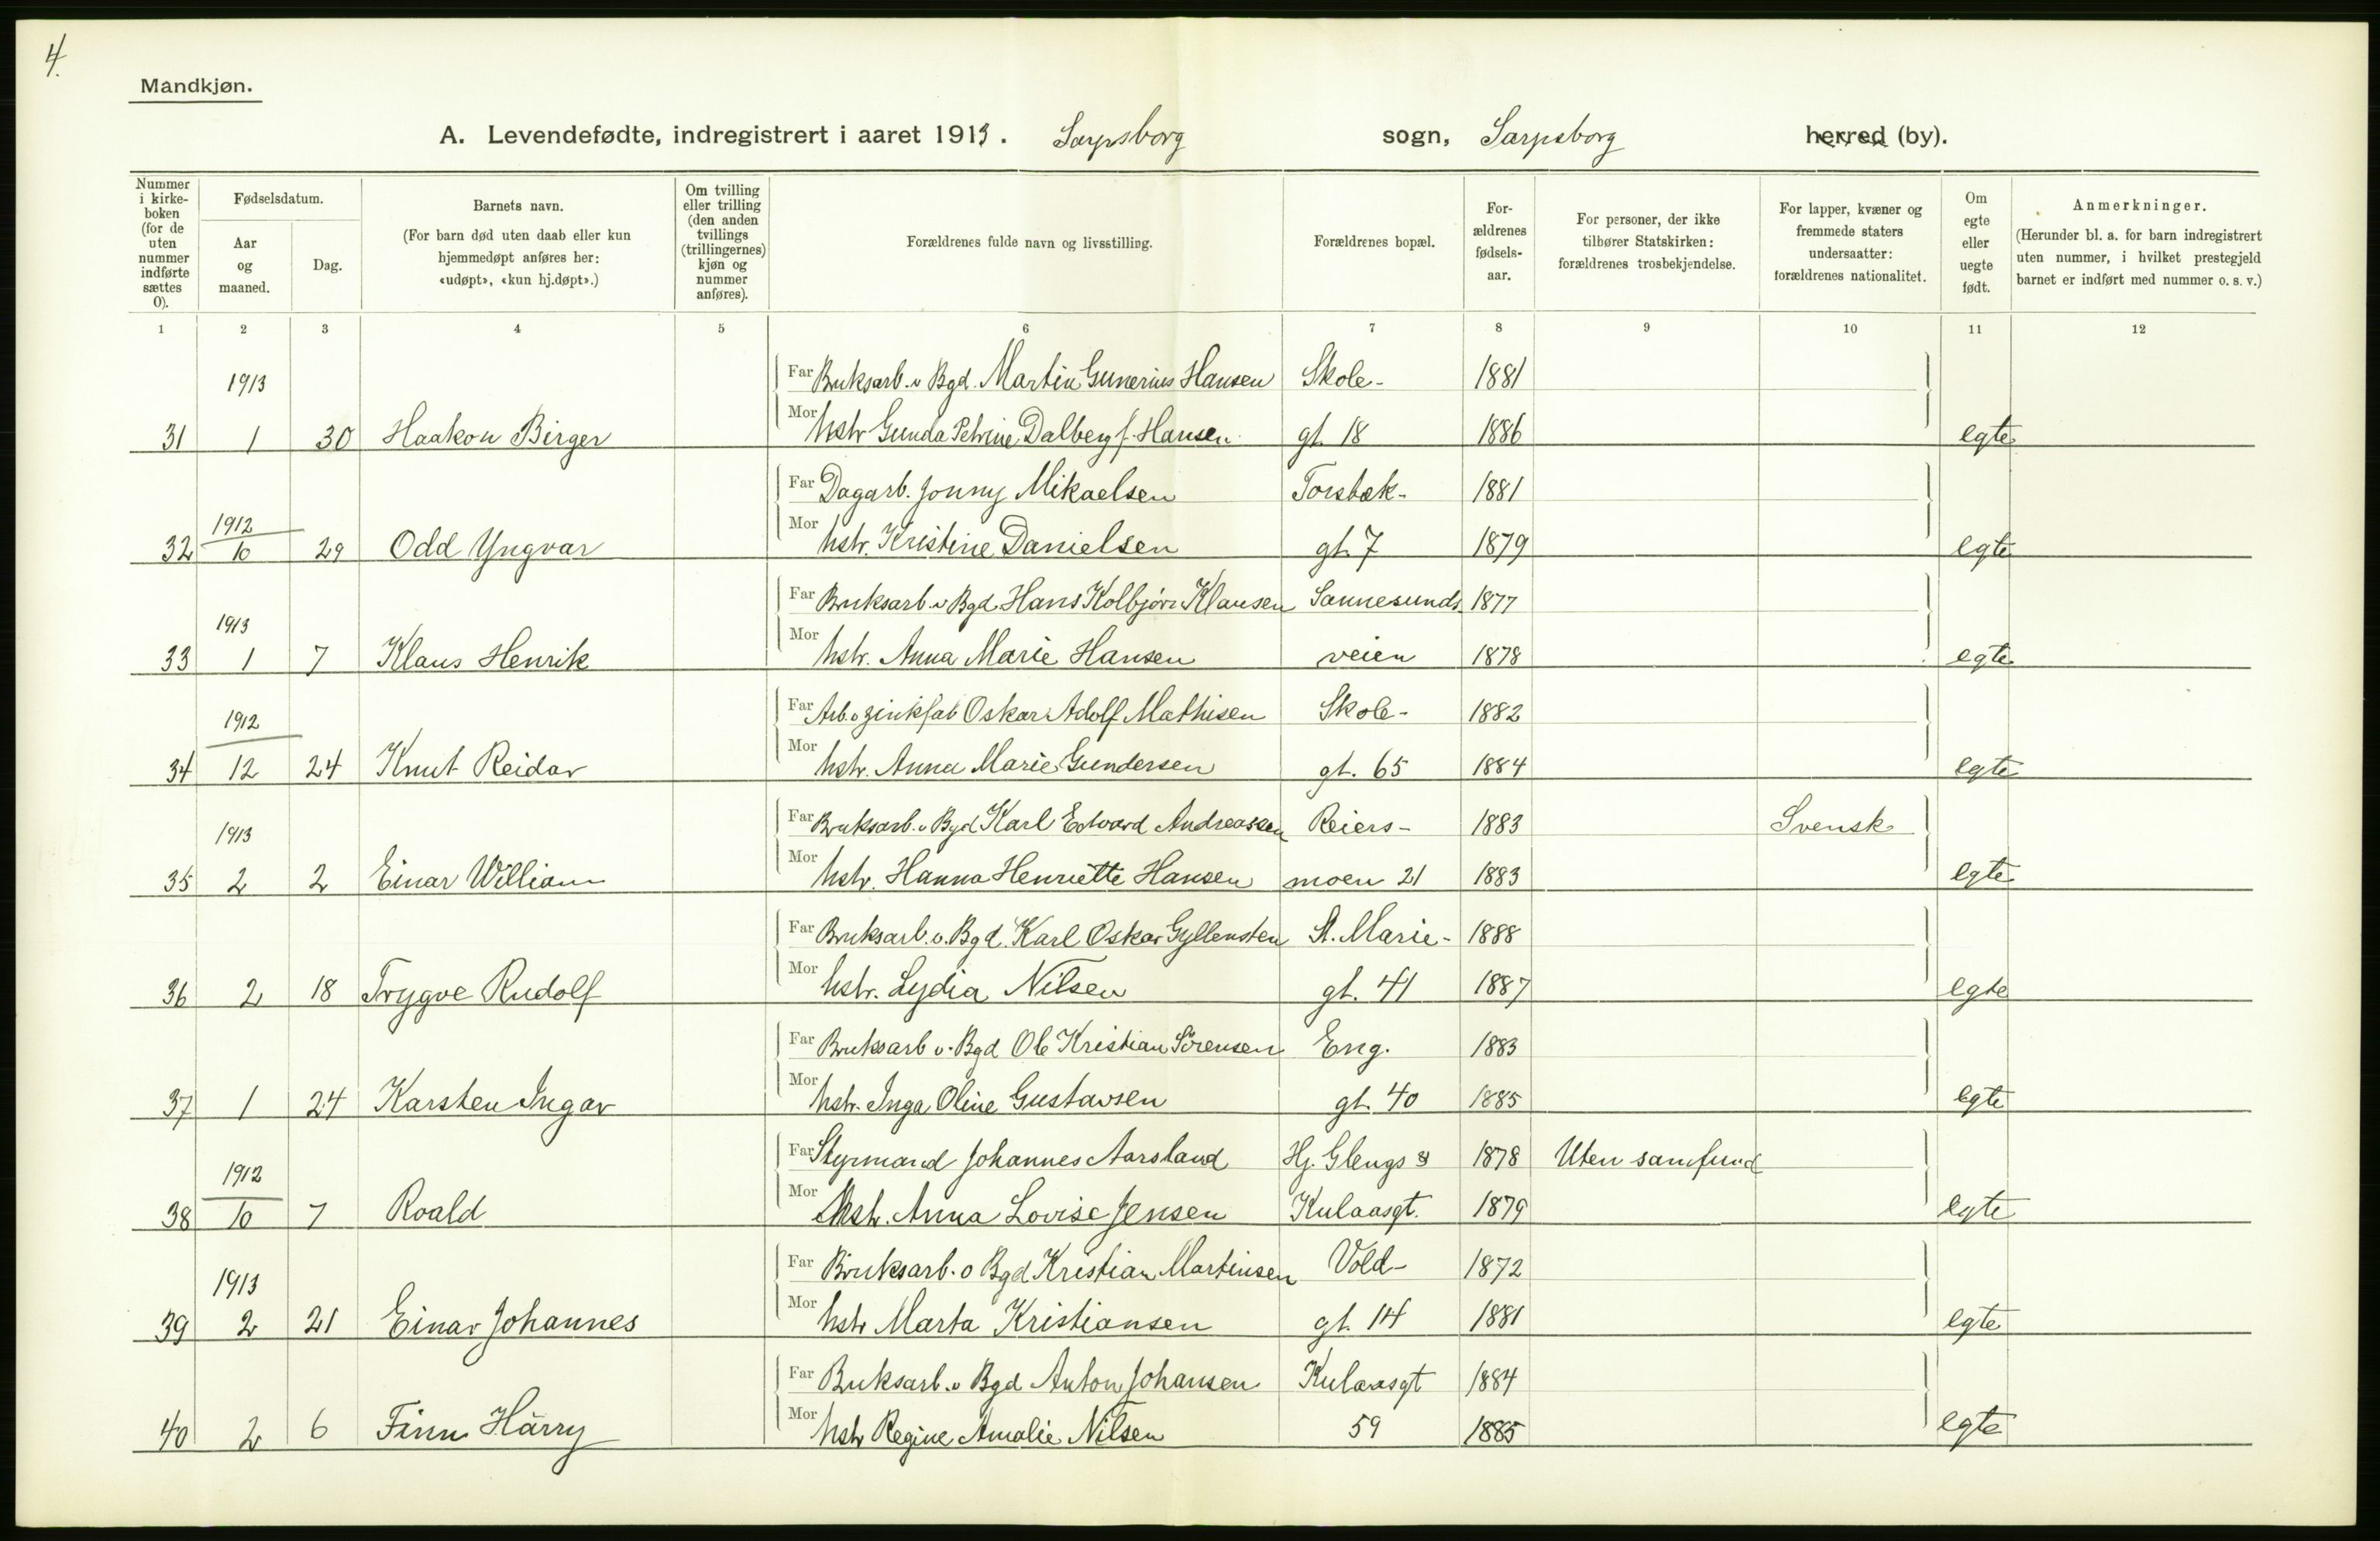 4.
Mandkjøn.
A. Levendefødte, indregistrert i aaret 1913. Sarpsborg sogn, Sarpsborg herred (by).
Nummer i kirke-boken (for de uten nummer indførte sættes 0). Fødselsdatum. Aar og maaned. Dag. Barnets navn. (For barn død uten daab eller kun hjemmedøpt anføres her: «udøpt», «kun hj.døpt».) Om tvilling eller trilling (den anden tvillings (trillingernes) kjøn og nummer anføres). Forældrenes fulde navn og livsstilling. Forældrenes bopæl. For-ældrenes fødsels-aar. For personer, der ikke tilhører Statskirken: forældrenes trosbekjendelse. For lapper, kvæner og fremmede staters undersaatter: forældrenes nationalitet. Om egte eller uegte født. Anmerkninger. (Herunder bl. a. for barn indregistrert uten nummer, i hvilket prestegjeld barnet er indført med nummer o. s. v.)
1 2 3 4 5 6 7 8 9 10 11 12
1913 Far Bruksarb. v Bgd. Martin Gunerius Hansen Skole- 1881
31 1 30 Haakon Birger Mor hstr Gunda Petrine Dalberg f. Hansen gt. 18 1886 egte
Far Dagarb. Jonny Mikaelsen Torsbæk- 1881
1912
32 10 29 Odd Yngvar Mor hstr. Kristine Danielsen gt. 7 1879 egte
Far Bruksarb. v Bgd. Hans Kolbjörn Klausen Sannesunds- 1877
1913
33 1 7 Klaus Henrik Mor hstr. Anna Marie Hansen veien 1878 egte
Far Arb. v zinkfab Oskar Adolf Mathisen Skole- 1882
1912
34 12 24 Knut Reidar Mor hstr. Anna Marie Gundersen gt. 65 1884 egte
Far Bruksarb. v Bgd Karl Edvard Andreassen Reiers- 1883 Svensk
1913
35 2 2 Einar William Mor hstr. Hanna Henriette Hansen moen 21 1883 egte
Far Bruksarb. v. Bgd. Karl Oskar Gyllensten St. Marie- 1888
36 2 18 Trygve Rudolf Mor hstr. Lydia Nilsen gt. 41 1887 egte
Far Bruksarb v. Bgd Ole Kristian Sörensen Eng. 1883
37 1 24 Karsten Ingar Mor hstr. Inga Oline Gustavsen gt. 40 1885 egte
Far Styrmand Johannes Aarsland Hj. Glengs & 1878 Uten samfund
1912
38 10 7 Roald Mor hstr. Anna Lovise Jensen Kulaasgt. 1879 egte
Far Bruksarb. v Bgd Kristian Martinsen Vold- 1872
1913
39 2 21 Einar Johannes Mor hstr Marta Kristiansen gt. 14 1881 egte
Far Bruksarb. v Bgd Anton Johansen Kulaasgt 1884
40 2 6 Finn Härry Mor hstr Regine Amalie Nilsen 59 1885 egte